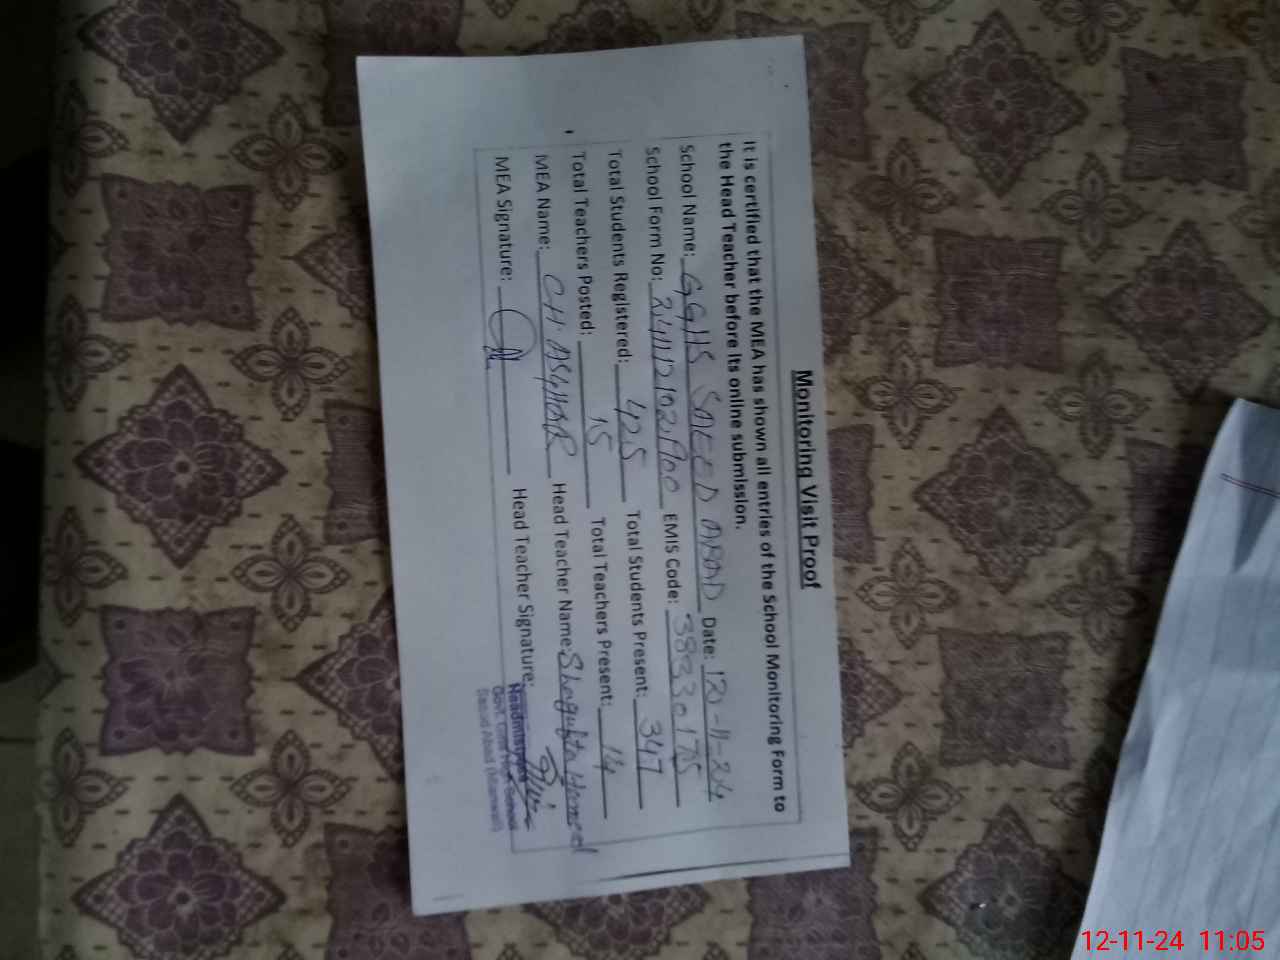 Monitoring Visit Proof
It is certified that the MEA has shown all entries of the School Monitoring Form to
the Head Teacher before its online submission.
School Name: GGHS SAEED ABAD Date: 12-11-24
School Form No: EMIS Code: 38330175
Total Students Registered: 425 Total Students Present: 347
Total Teachers Posted: 15 Total Teachers Present: 14
MEA Name: CH. ASGHAR Head Teacher Name: Shagufta Hameed
MEA Signature: Head Teacher Signature:
Headmistress
Govt. Girls High School
Saeed Abad (Mianwali)
12-11-24 11:05